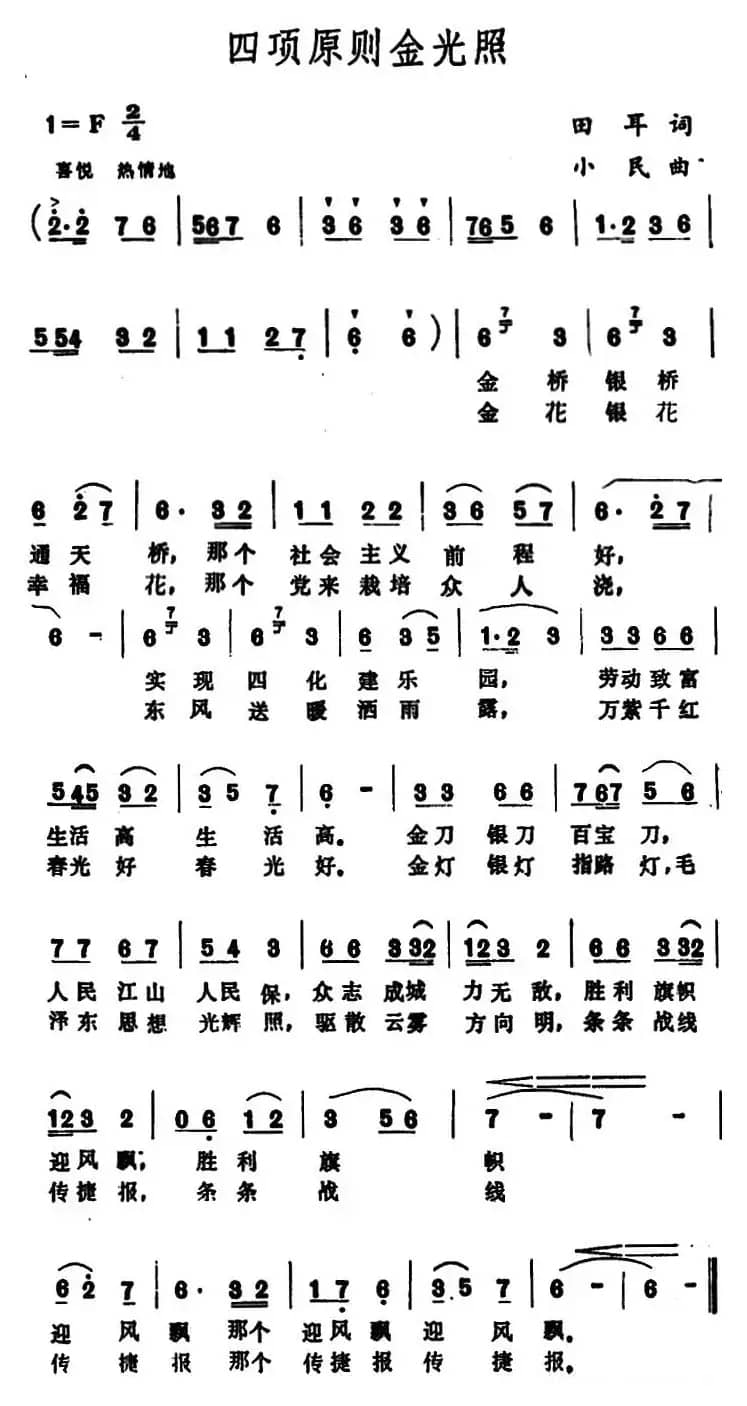 四项原则金光照
1=F 2/4
田耳词
喜悦 热情地
小民曲
(2·2 76 | 567 6 | 36 36 | 765 6 | 1·2 36 |
554 32 | 11 27 | 6 6 ) | 6 7 3 | 6 7 3 |
金桥银桥
金花银花
6 27 | 6· 32 | 11 22 | 36 57 | 6· 27 |
通天桥,那个社会主义前程好,
幸福花,那个党来栽培众人浇,
6 - | 6 7 3 | 6 7 3 | 6 35 | 1·2 3 | 33 66 |
实现四化建乐园,劳动致富
东风送暖洒雨露,万紫千红
545 32 | 35 7 | 6 - | 33 66 | 767 56 |
生活高生活高。金刀银刀百宝刀,
春光好春光好。金灯银灯指路灯,毛
77 67 | 54 3 | 66 332 | 123 2 | 66 332 |
人民江山人民保,众志成城力无敌,胜利旗帜
泽东思想光辉照,驱散云雾方向明,条条战线
123 2 | 06 12 | 3 56 | 7 - | 7 - |
迎风飘;胜利旗帜
传捷报,条条战线
62 7 | 6· 32 | 17 6 | 3.5 7 | 6 - | 6 - ‖
迎风飘那个迎风飘迎风飘。
传捷报那个传捷报传捷报。